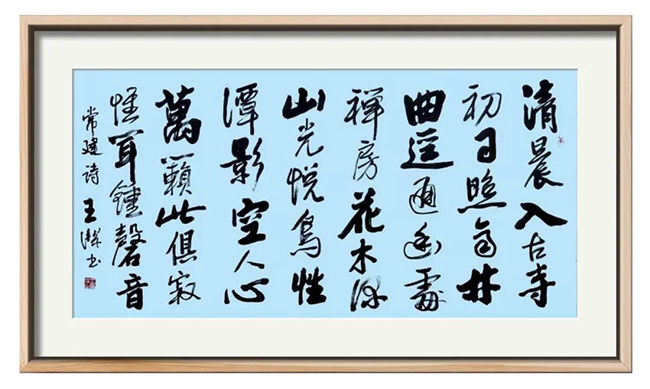 清晨入古寺
初日照高林
曲逕通幽處
禪房花木深
山光悦鳥性
潭影空人心
萬籟此俱寂
惟聞鍾磬音
常建诗 王 书